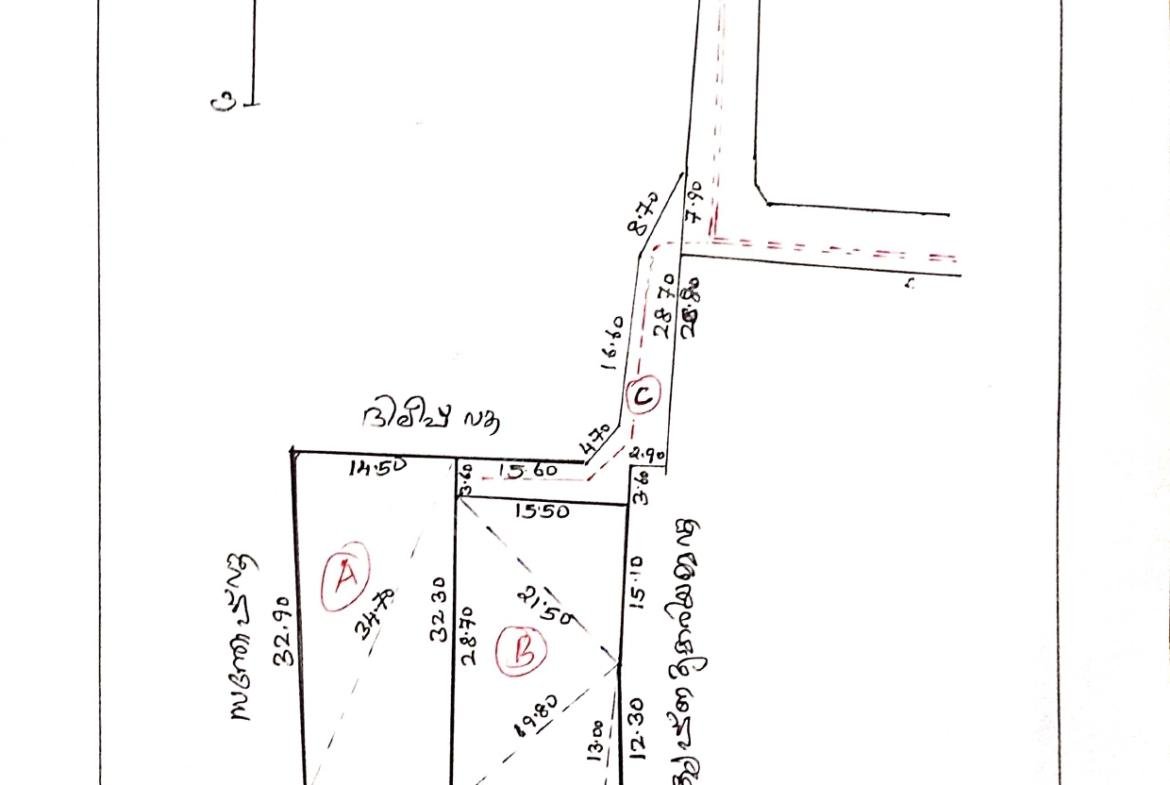 8.70
7.90
28.70
28.80
16.60
C
ദിലീപ് വക
4.70
2.90
14.50
3.60
15.60
3.60
15.50
A
34.70
32.90
32.30
28.70
21.50
15.10
B
19.80
13.00
12.30